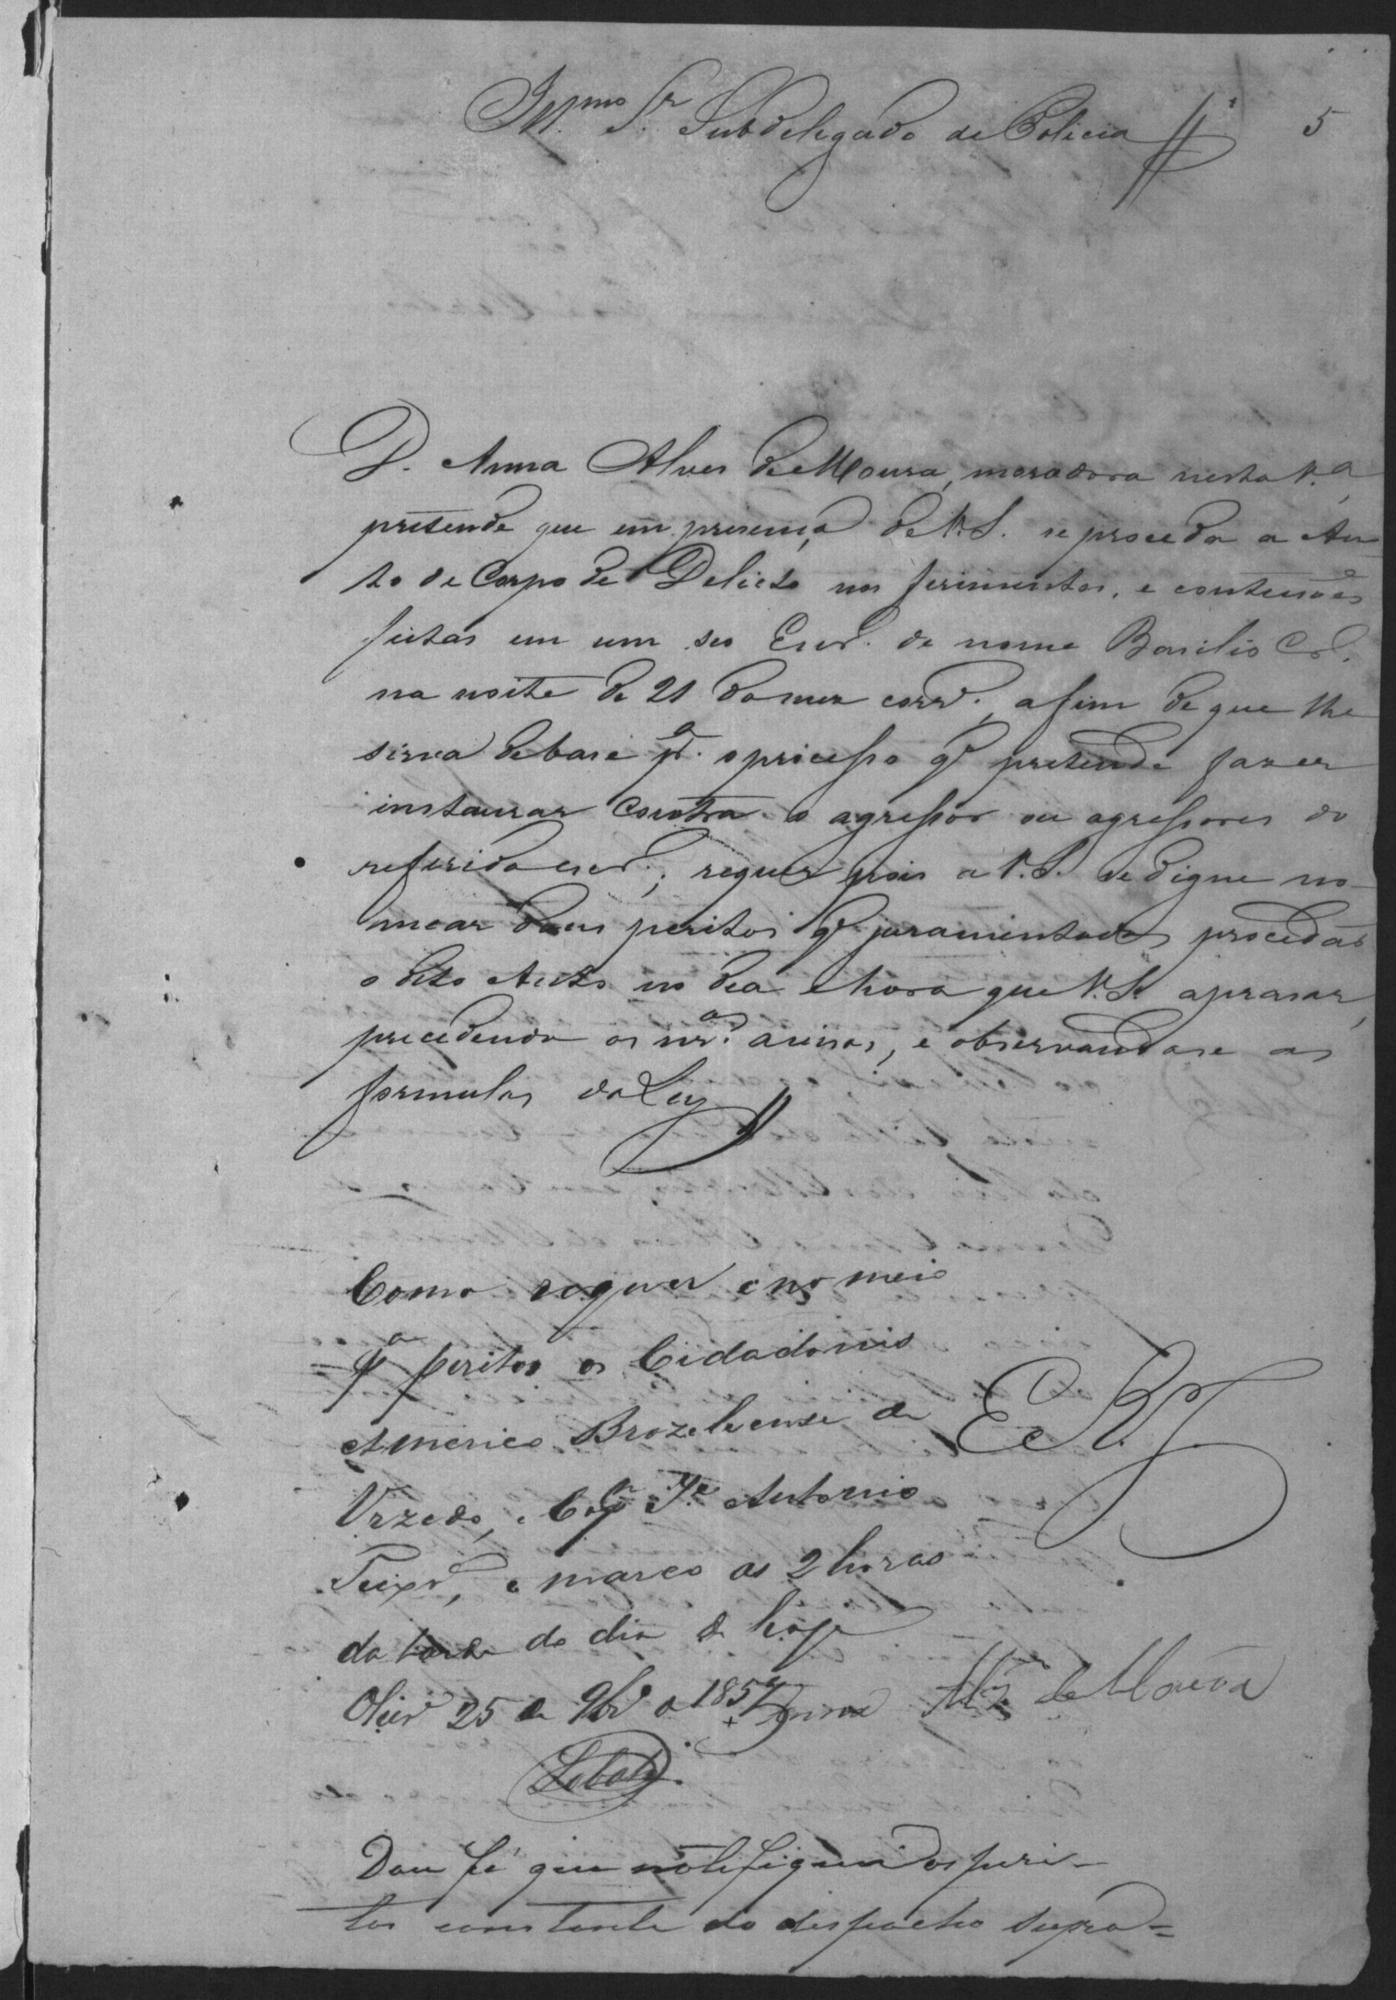 Illmo Sr Subdelegado de Policia
5
D. Anna Alves de Moura, moradora nesta V.a,
pretende que em presença de V.S. se proceda a Au-
to de Corpo de Delicto nos ferimentos, e contusoẽs
feitas em um seo Escr.o de nome Basilio Cr.o
na noite de 21 do mez corr.e, afim de que lhe
sirva de base p.a o processo q' pretende fazer
instaurar contra o agressor ou agressores do
referido escr.o; requer pois a V.S. se digne no-
mear dous peritos q' juramentados procedão
o dito Auto no dia e hora que V.S. aprasar,
precedendo os nr.os avisos, e observandose as
formulas da Ley
Como requer e nomeio
p.a peritos os Cidadonis
Americo Brazeliense de
Urzedo, e Cap.m J.e Antonio
Teixr.a, e marco as 2 horas
da tarde do dia de hoje
E. R. J.
25 de 9br.o de 1857
Anna Alz. de Moura
Dou fé que notifiquei os peri-
tos constante do despacho supra=